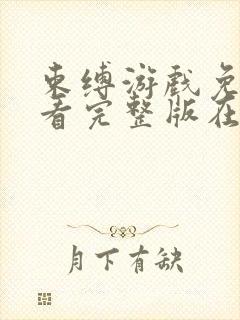 束缚游戏免
看完整版在
月下有缺